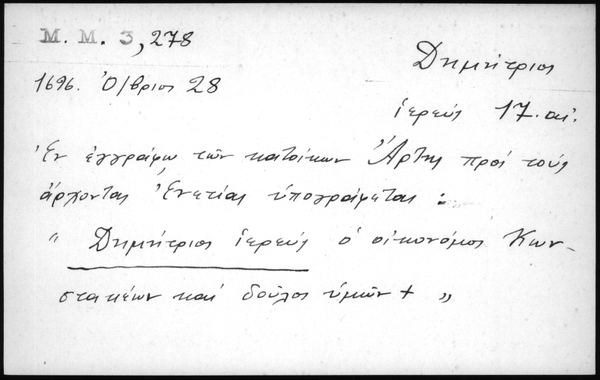 Μ. Μ. 3, 278
Δημήτριος
1696. Ὀ/βριος 28
ἱερεύς 17. αἰ.
Ἐν ἐγγράφω τῶν κατοίκων Ἄρτης πρός τούς
ἄρχοντας Ἐνετίας ὑπογράφεται :
" Δημήτριος ἱερεύς ὁ οἰκονόμος Κων-
στακέων καί δοῦλος ὑμῶν + "